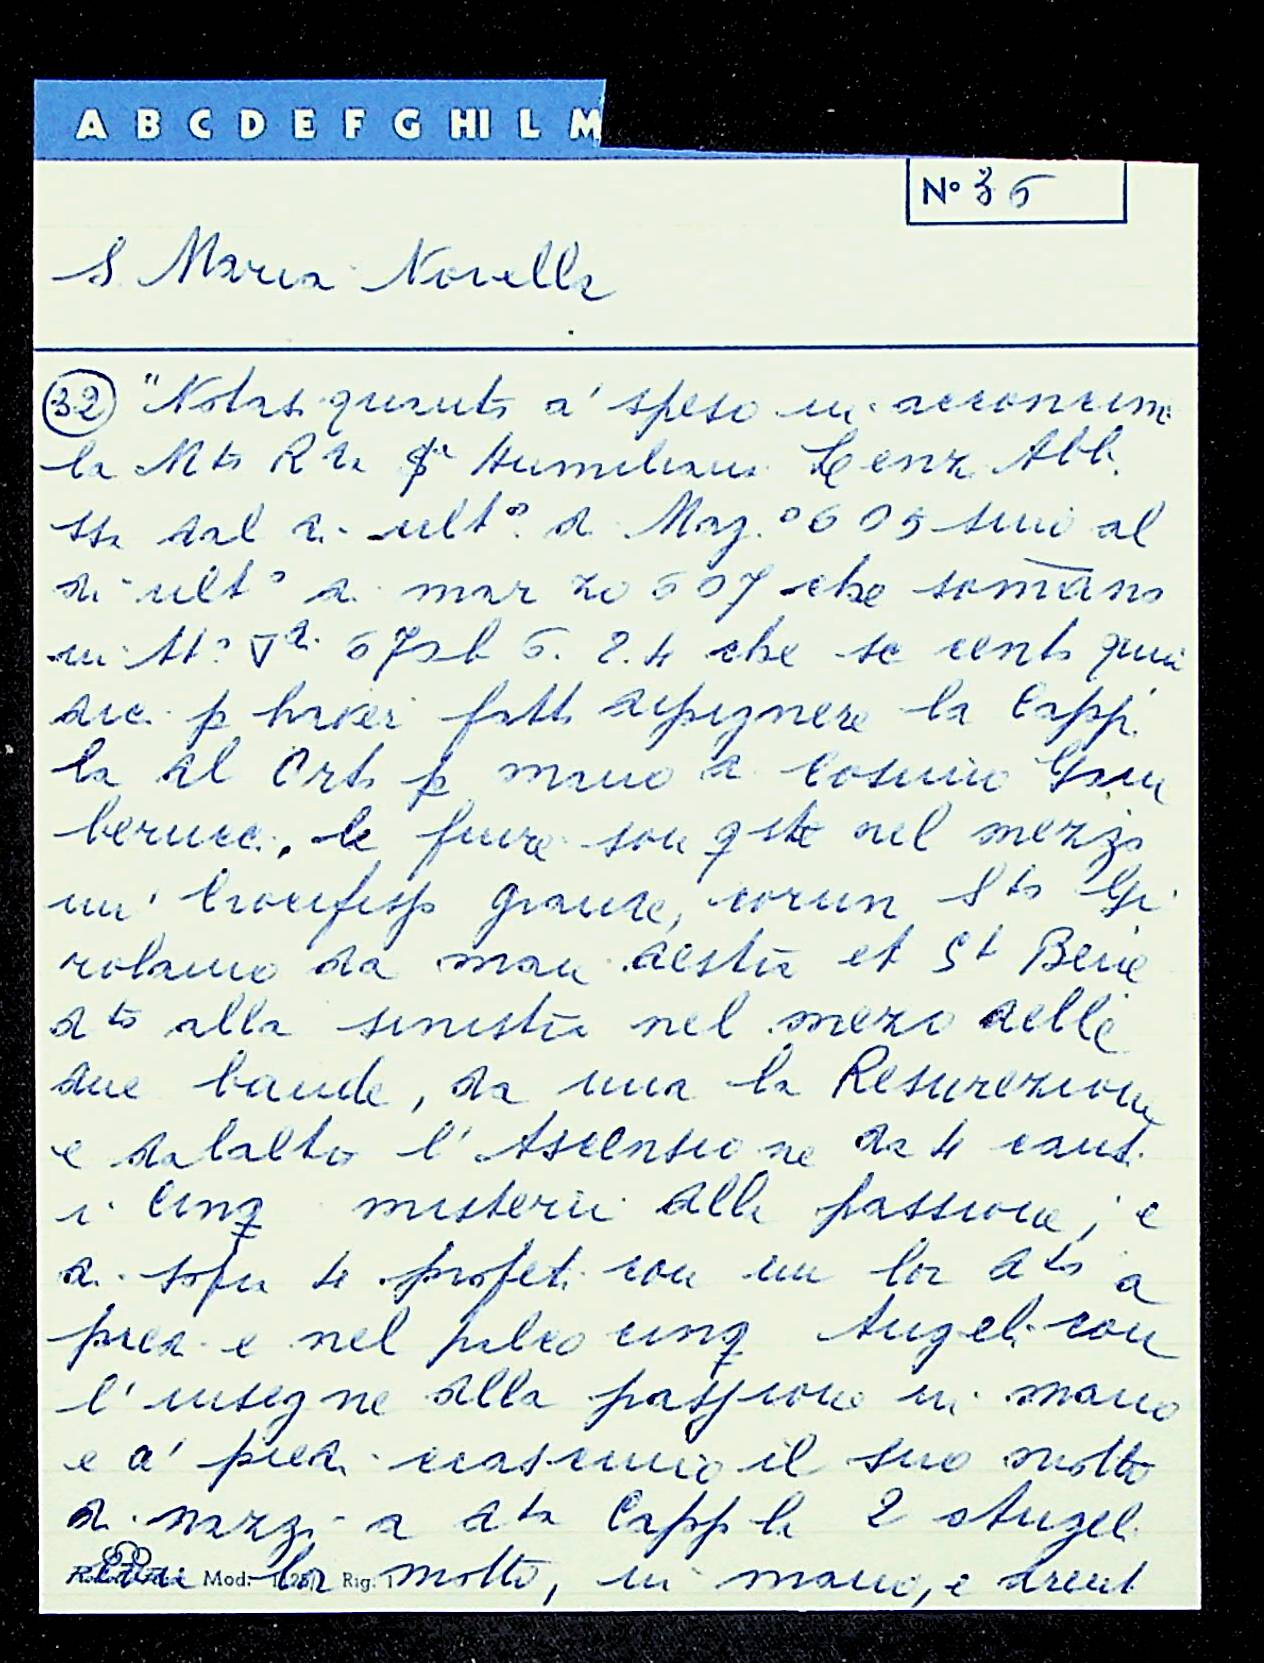 A B C D E F G HI L M
N° 36
S. Maria Novella
32 "Nota di quanto a' speso in acconcimi
la Mto Rda Sr Humiliana Lenzi Abb.
ssa dal di ult° di Mag.° 605 sino al
di ult° di marzo 607 che sommano
in tt° 67 sb 6. 2. 4 che sc cento quin
dici p haver fatto dipignere la Capp.
la al Orto p mano di Cosimo Gam
berucci, le fiure son qste nel mezzo
un' Crocifisso grande, con un Sto Gi
rolamo da man destra et St Bene
dto alla sinistra nel mezo delle
due bande, da una la Resurezione
e dalalto l'Ascensione da 4 canti
i cinq misterii della passione, e
di sopra 4 profeti con un lor dto a
piedi e nel palco cinq Angeli con
l'insegne della passione in mano
e a' piedi ciascuno il suo motto
di nazzi a dta Cappla 2 Angeli
con lor motto, in mano, e drent
Mod. Rig. 1